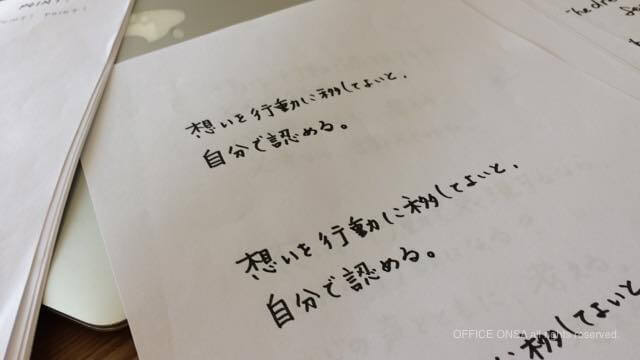 POINT!
想いを行動に移してよいと、
自分で認める。
想いを行動に移してよいと、
自分で認める。
移してよいと
OFFICE ONSA all rights reserved.